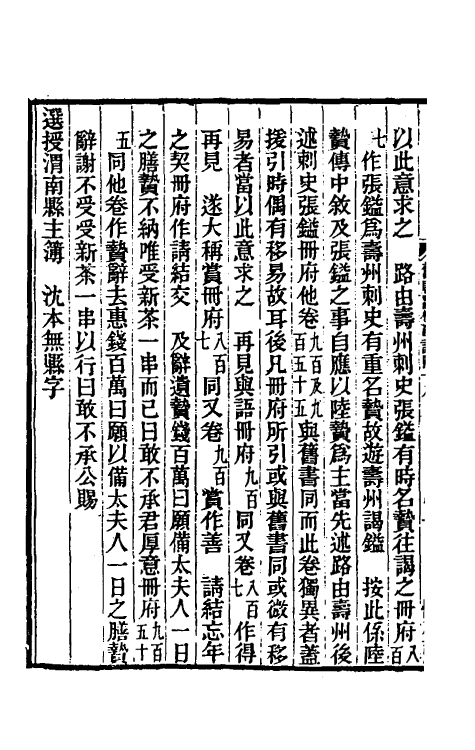 以此意求之　路由壽州刺史張鎰有時名贄往謁之冊府八百
七作張鎰爲壽州刺史有重名贄故遊壽州謁鎰　按此係陸
贄傳中敘及張鎰之事自應以陸贄爲主當先述路由壽州後
述刺史張鎰冊府他卷九百及九百五十五與舊書同而此卷獨異者蓋
援引時偶有移易故耳後凡冊府所引或與舊書同或微有移
易者當以此意求之　再見與語冊府九百同又卷八百七作得
再見　遂大稱賞冊府八百七同又卷九百賞作善　請結忘年
之契冊府作請結交　及辭遺贄錢百萬曰願備太夫人一日
之膳贄不納唯受新茶一串而已曰敢不承君厚意冊府九百五十
五同他卷作贄辭去惠錢百萬曰願以備太夫人一日之膳贄
辭謝不受受新茶一串以行曰敢不承公賜
選授渭南縣主簿　沈本無縣字